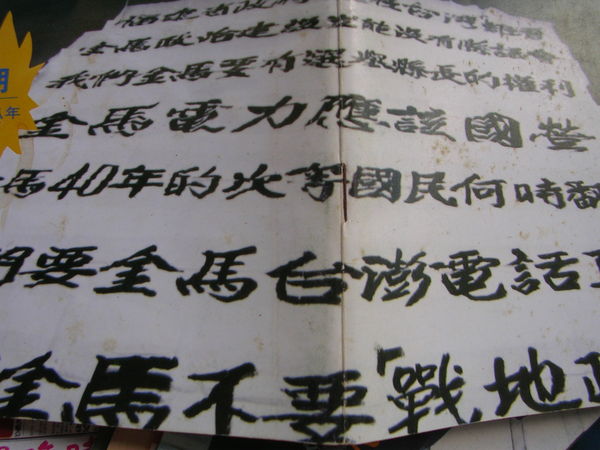 福建省政府
金馬政治建設豈能沒有縣議會
我們金馬要有選舉縣長的權利
金馬電力應該國營
馬40年的次等國民何時翻
們要金馬台澎電話直
金馬不要「戰地政
期
年